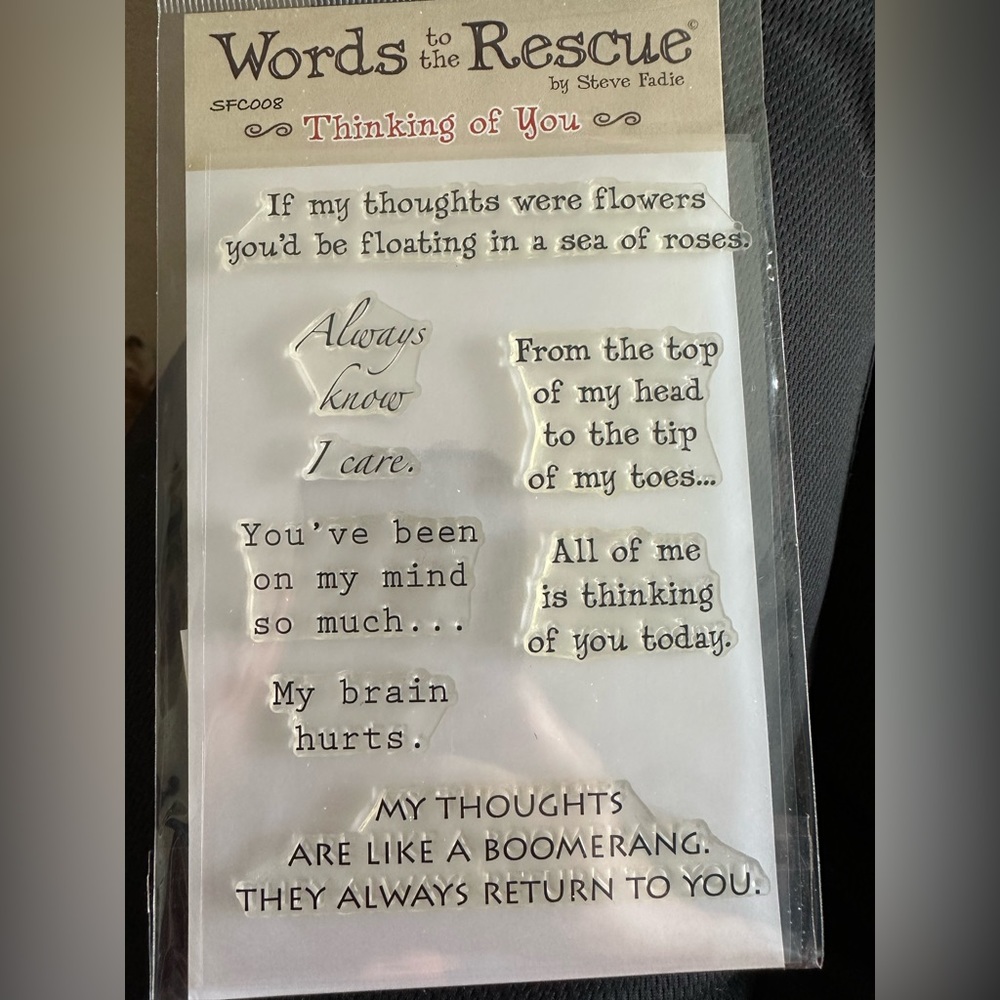 Words to the Rescue©
by Steve Fadie
SFC008
Thinking of You
If my thoughts were flowers
you'd be floating in a sea of roses.
Always
know
I care.
From the top
of my head
to the tip
of my toes...
You've been
on my mind
so much...
All of me
is thinking
of you today.
My brain
hurts.
MY THOUGHTS
ARE LIKE A BOOMERANG.
THEY ALWAYS RETURN TO YOU.